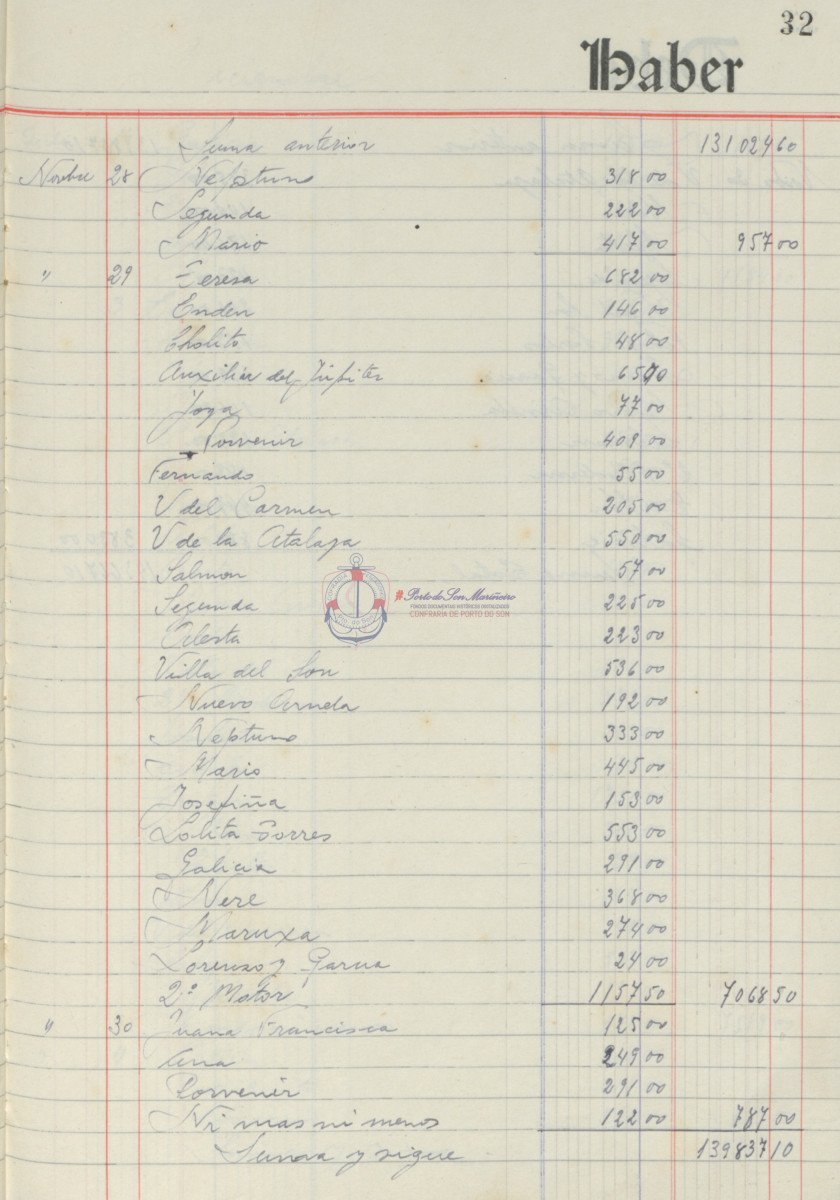 32
Haber
Suma anterior 131024 60
Novbre 28 Neptuno 318 00
Segunda 222 00
Mario 417 00 957 00
" 29 Teresa 682 00
Enden 146 00
Cholito 48 00
Auxiliar del Júpiter 65 00
Joya 77 00
Porvenir 409 00
Fernando 55 00
V del Carmen 205 00
V de la Atalaya 550 00
Salmon 57 00
Segunda 225 00
Celesta 223 00
Villa del Son 536 00
Nuevo Arnela 192 00
Neptuno 333 00
Mario 445 00
Josefiña 153 00
Lolita Torres 553 00
Galicia 291 00
Nere 368 00
Maruxa 274 00
Lorenzo y Garcia 24 00
2º Motor 1157 50 7068 50
" 30 Juana Francisca 125 00
Ana 249 00
Porvenir 291 00
Ni mas ni menos 122 00 787 00
Suma y sigue 139837 10
#Porto do Son Mariñeiro
FONDOS DOCUMENTAIS HISTÓRICOS DIXITALIZADOS
CONFRARIA DE PORTO DO SON